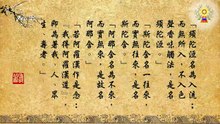 「須陀洹名為入流,
而無所入,不入色
聲香味觸法,是名
須陀洹。」
「斯陀含名一往來,
而實無往來,是名
斯陀含。」
「阿那含名為不來,
而實無來,是故名
阿那含。」
「若阿羅漢作是念:
『我得阿羅漢道』,
即為著我、人、眾
生、壽者。」